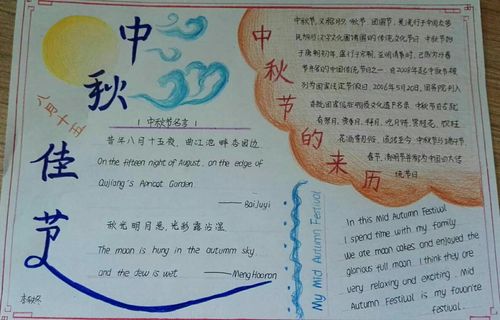 中秋佳节
八月十五
中秋节名言
昔年八月十五夜，曲江池畔杏园边
On the fifteen night of August, on the edge of
Qujiang's Apricot Garden
——Bai Juyi
秋光明月悬，光彩露沾湿
The moon is hung in the autumn sky
and the dew is wet ——Meng Haoran
中秋节的来历
中秋节，又称月夕、秋节、团圆节，是流行于中国众多
民族与汉字文化圈诸国的传统文化节日，中秋节始
于唐朝初年，盛行于宋朝，至明清时，已成为与春
节齐名的中国传统节日之一。自2008年起中秋节被
列为国家法定节假日。2006年5月20日，国务院列入
首批国家级非物质文化遗产名录。中秋节自古就
有祭月、赏月、拜月、吃月饼、赏桂花、饮桂
花酒等习俗，流传至今，中秋节与端午节
春节、清明节并称为中国四大传
统节日
My Mid Autumn Festival
In this Mid Autumn Festival
I spend time with my family.
We ate moon cakes and enjoyed the
glorious full moon. I think they are
very relaxing and exciting. Mid
Autumn Festival is my favorite
festival.